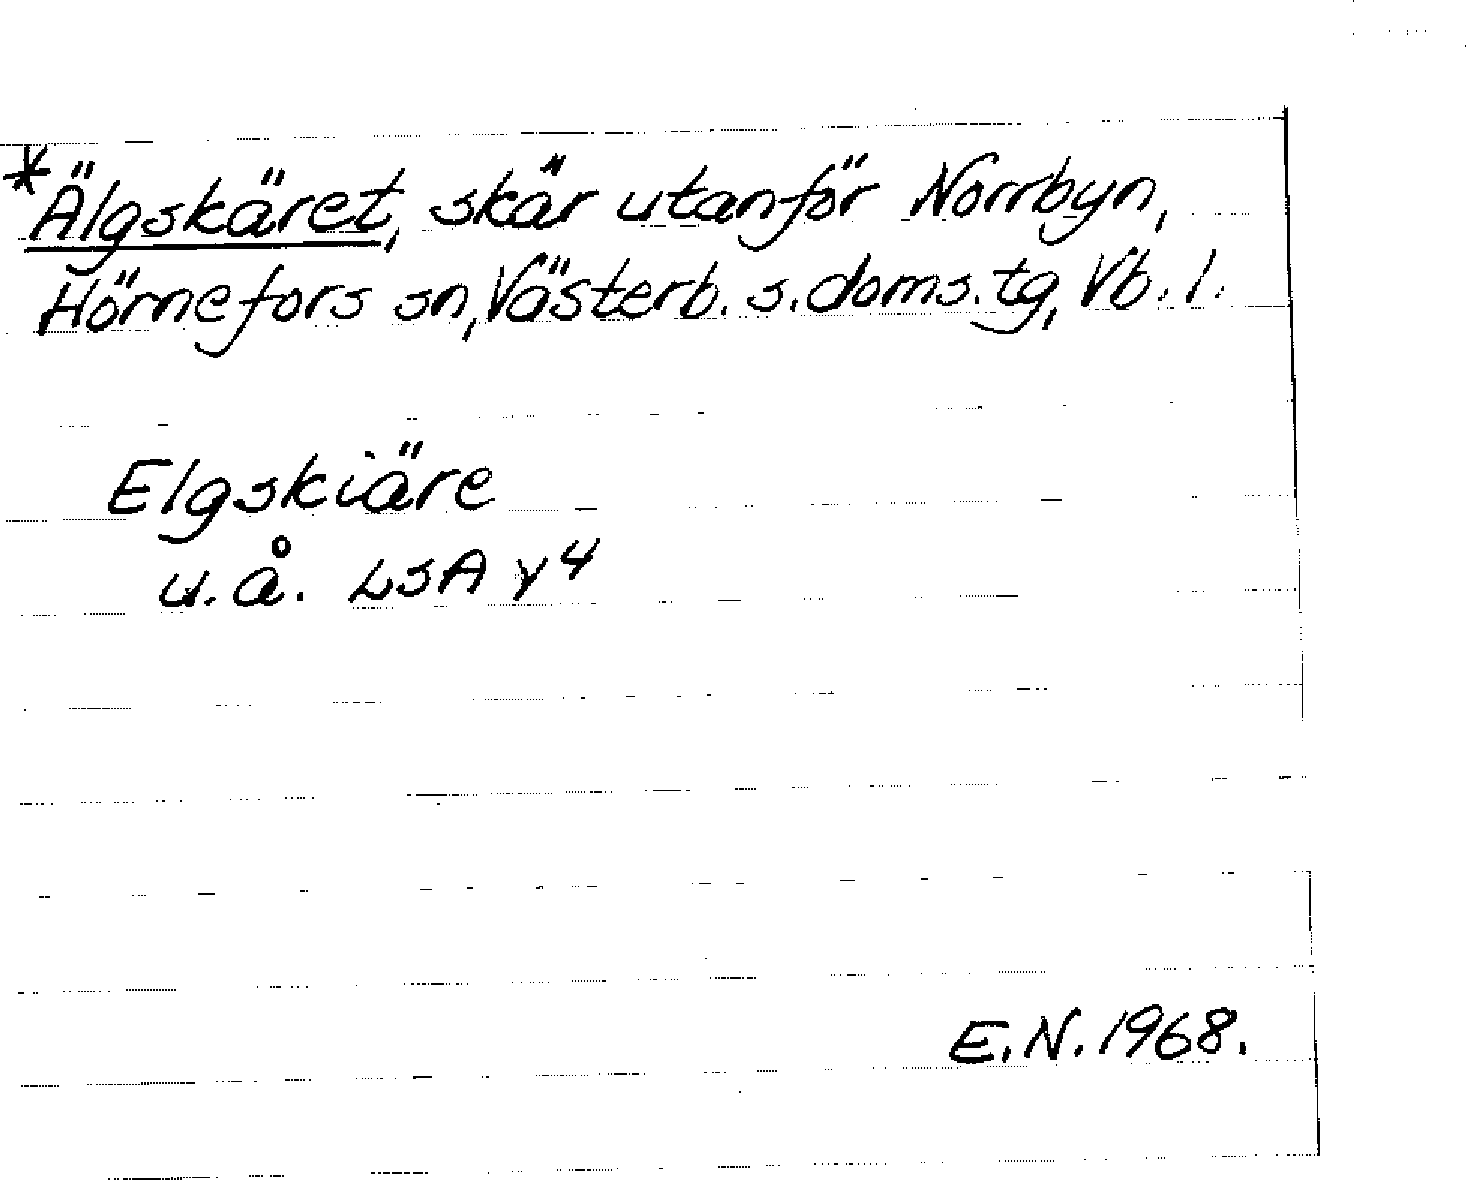 *Älgskäret, skär utanför Norrbyn,
Hörnefors sn, Västerb. s. doms. tg, Vb. l.
Elgskiäre
u.å. LSA γ 4
E.N. 1968.